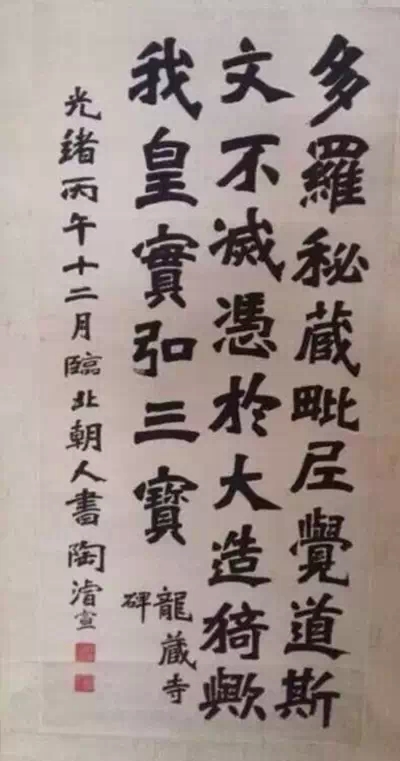 多羅秘蔵毗尼覺道斯
文不滅憑於大造猗歟
我皇實弘三寶
龍蔵寺
碑
光緒丙午十二月臨北朝人書陶濬宣